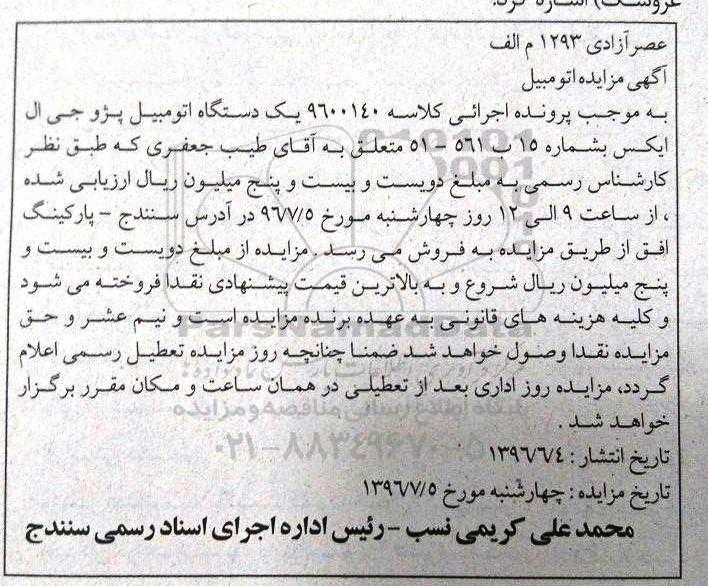 عصر آزادی ۱۲۹۳ م الف
آگهی مزایده اتومبیل
به موجب پرونده اجرائی کلاسه ۹۶۰۰۱۴۰ یک دستگاه اتومبیل پژو جی ال
ایکس بشماره ۱۵ ب ۵۶۱ - ۵۱ متعلق به آقای طیب جعفری که طبق نظر
کارشناس رسمی به مبلغ دویست و بیست و پنج میلیون ریال ارزیابی شده
، از ساعت ۹ الی ۱۲ روز چهارشنبه مورخ ۹۶۷/۵ در آدرس سنندج - پارکینگ
افق از طریق مزایده به فروش می رسد . مزایده از مبلغ دویست و بیست و
پنج میلیون ریال شروع و به بالاترین قیمت پیشنهادی نقدا فروخته می شود
و کلیه هزینه های قانونی به عهده برنده مزایده است و نیم عشر و حق
مزایده نقدا وصول خواهد شد ضمنا چنانچه روز مزایده تعطیل رسمی اعلام
گردد، مزایده روز اداری بعد از تعطیلی در همان ساعت و مکان مقرر برگزار
خواهد شد .
تاریخ انتشار : ۱۳۹۶/۶/۴
تاریخ مزایده : چهارشنبه مورخ ۱۳۹۶۷/۵
محمد علی کریمی نسب - رئیس اداره اجرای اسناد رسمی سنندج
ParsNamadData
پایگاه اطلاع رسانی مناقصه و مزایده
۰۲۱-۸۸۳۴۹۶۷۰-۵